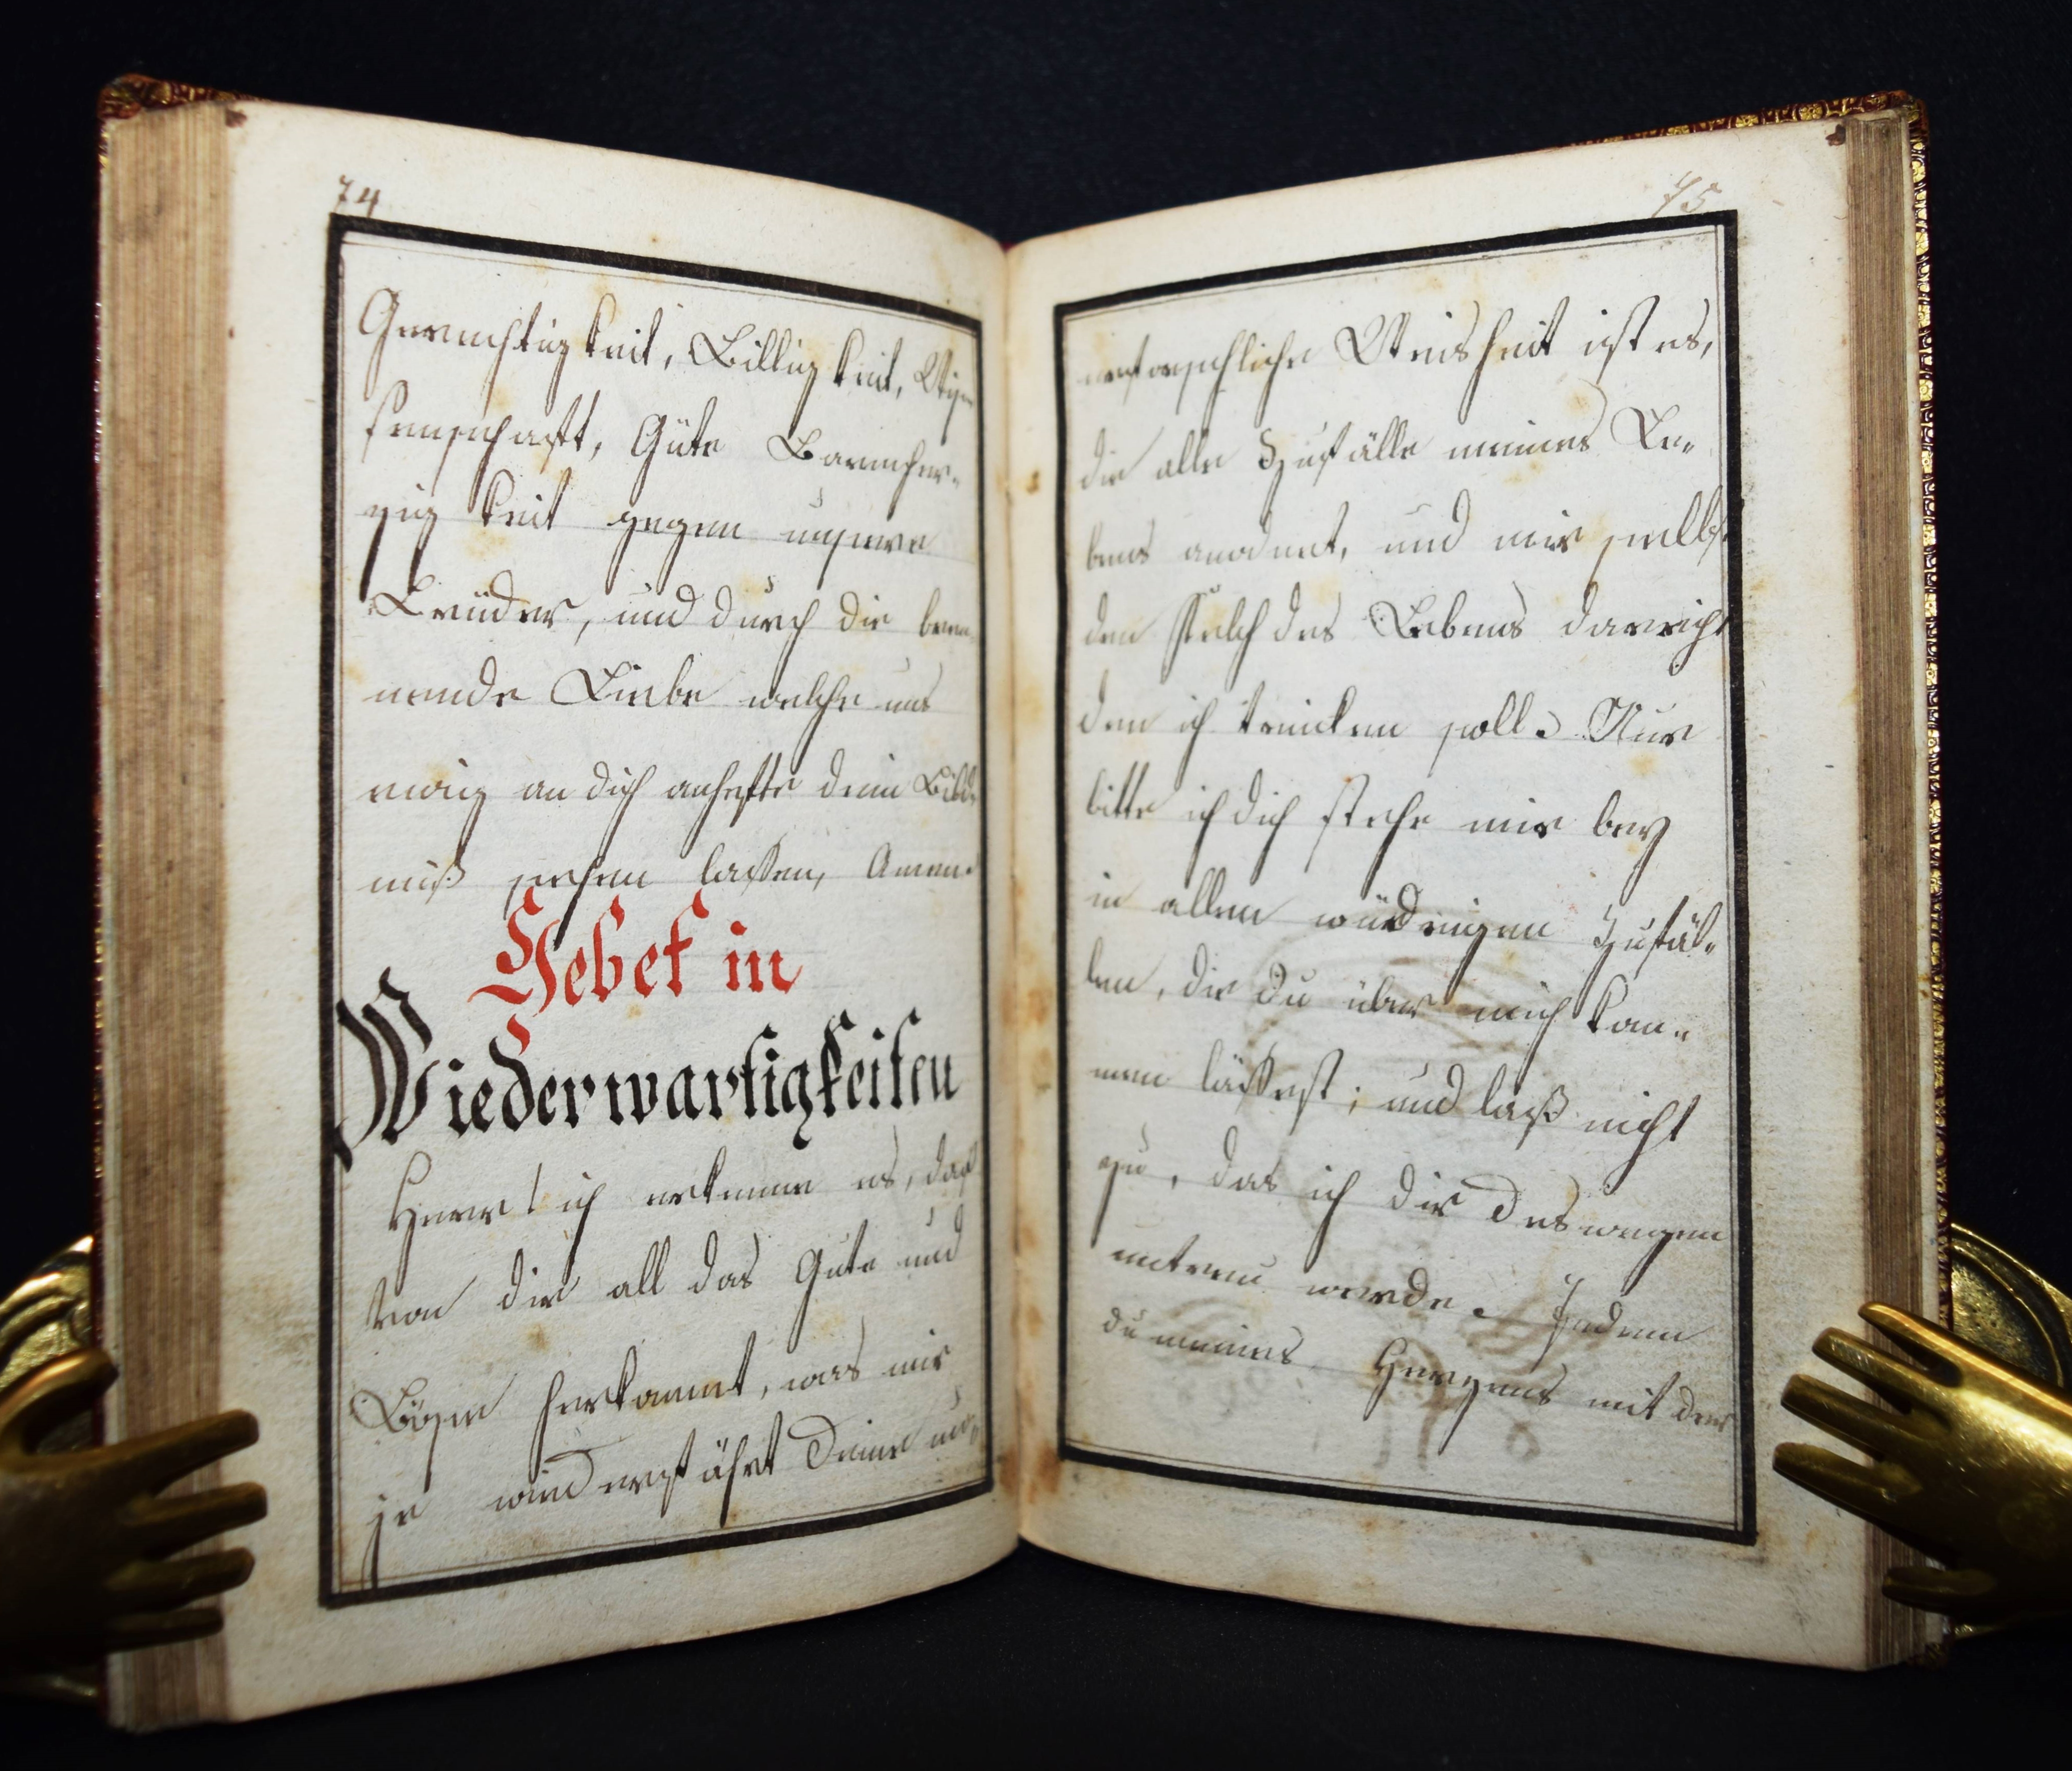 74
Gerechtigkeit, Billigkeit, Wis-
senschaft, Güte Barmher-
zigkeit gegen unsere
Brüder, und durch die bren-
nende Liebe welche uns
ewig an dich anhefte dein Bild-
niß sehen lassen, Amen.
Gebet in
Wiederwartigkeiten
Herr! ich erkenne es, daß
von dir all das Gute und
Böse herkommt, was mir
je wiederfährt Deine un-
75
erforschliche Weisheit ist es,
die alle Zufälle meines Le-
bens anordnet, und mir selbst
den Kelch des Lebens darreicht
den ich trincken soll. Nur
bitte ich dich stehe mir bey
in allen wiedrigen Zufäl-
len, die du über mich kom-
men lässest; und laß nicht
zu, das ich dir deswegen
untreu werde. Indem
du meines Herzens mit der